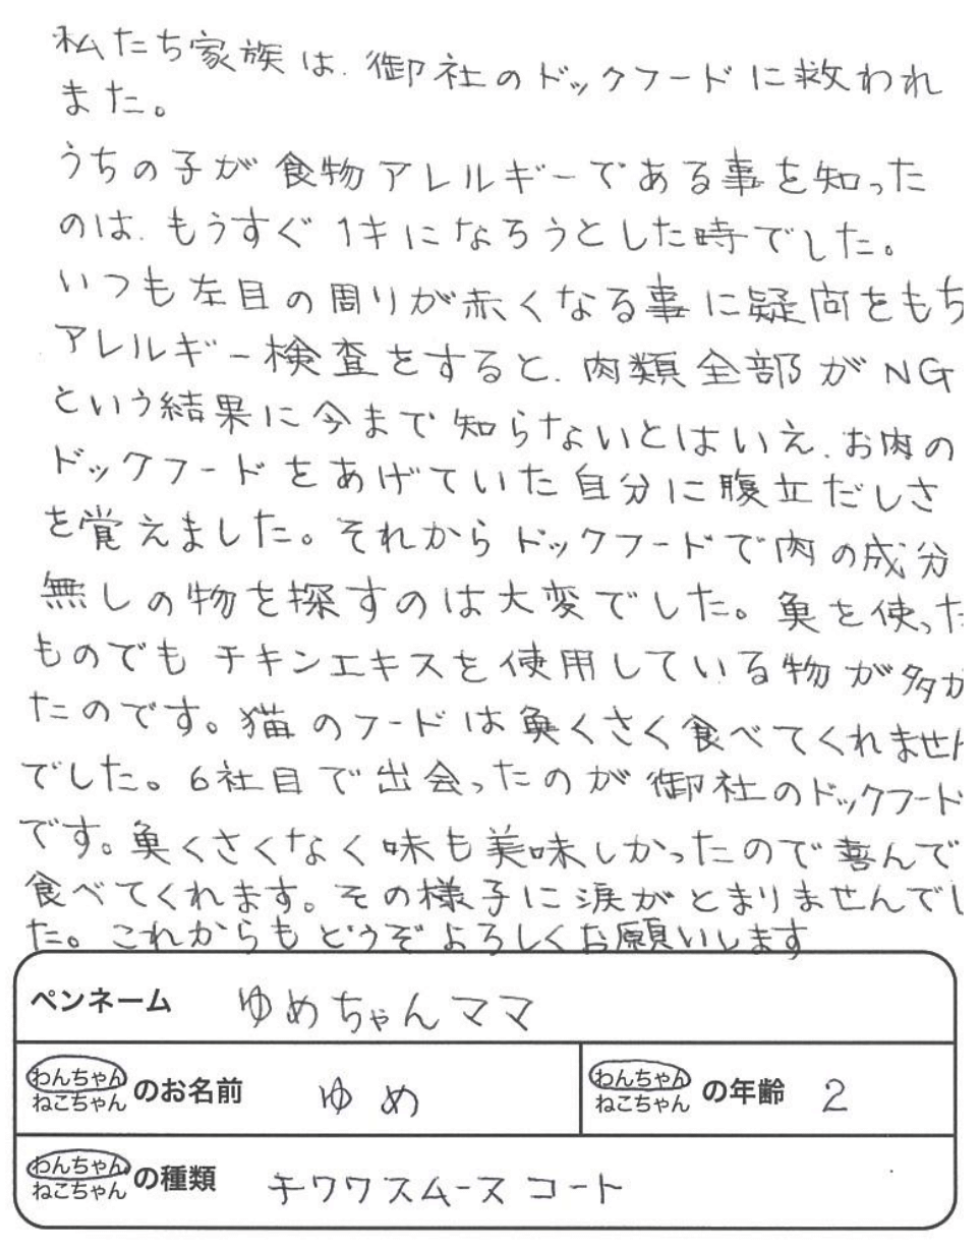 私たち家族は、御社のドックフードに救われ
ました。
うちの子が食物アレルギーである事を知った
のは、もうすぐ1才になろうとした時でした。
いつも左目の周りが赤くなる事に疑問をもち
アレルギー検査をすると、肉類全部がNG
という結果に今まで知らないとはいえ、お肉の
ドックフードをあげていた自分に腹立だしさ
を覚えました。それからドックフードで肉の成分
無しの物を探すのは大変でした。魚を使った
ものでもチキンエキスを使用している物が多か
たのです。猫のフードは魚くさく食べてくれません
でした。6社目で出会ったのが御社のドックフード
です。魚くさくなく味も美味しかったので喜んで
食べてくれます。その様子に涙がとまりませんでし
た。これからもどうぞよろしくお願いします
ペンネーム ゆめちゃんママ
わんちゃん
ねこちゃん のお名前 ゆめ
わんちゃん
ねこちゃん の年齢 2
わんちゃん
ねこちゃん の種類 チワワスムースコート